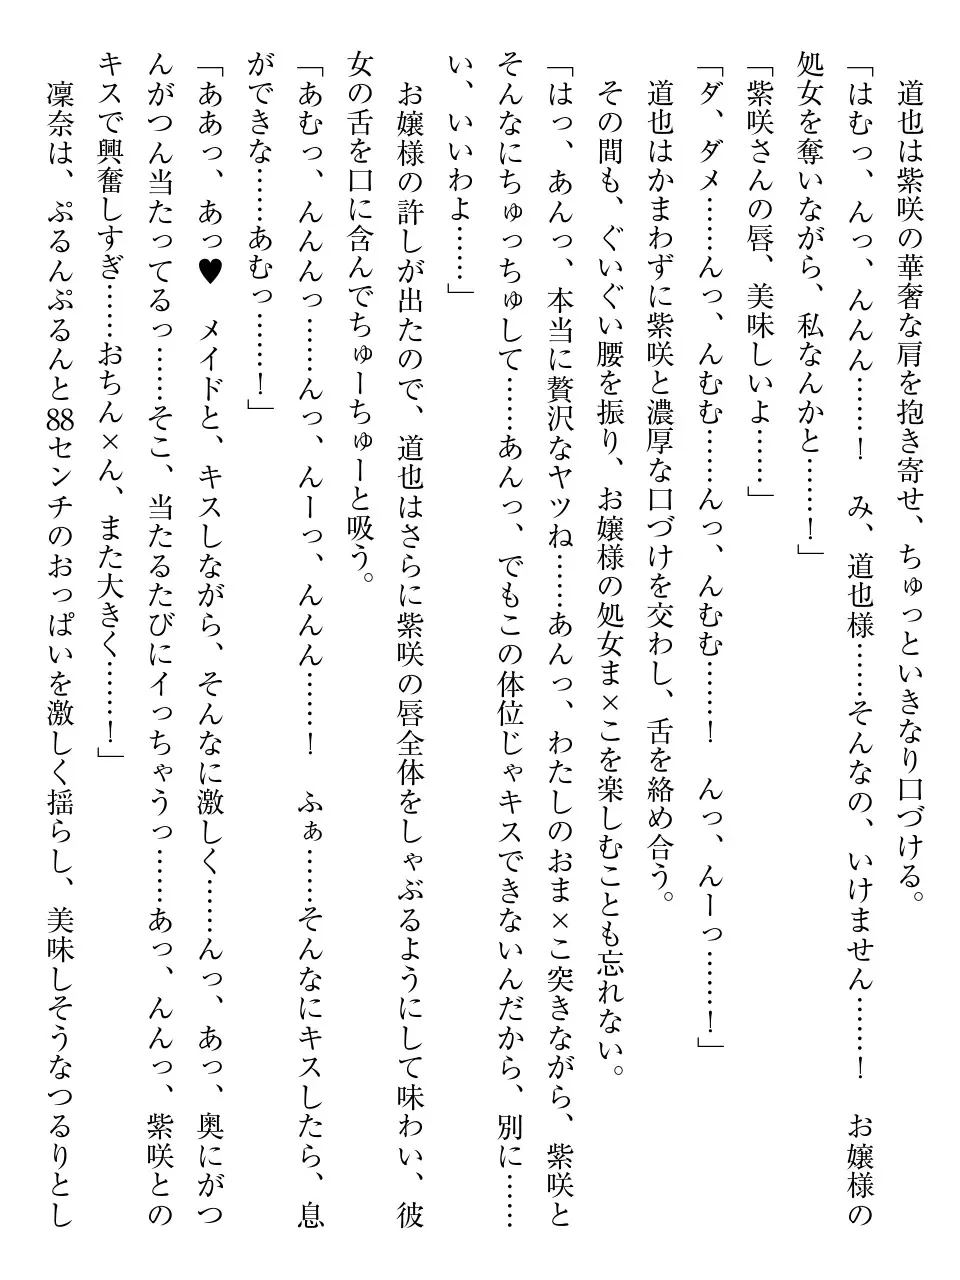 道也は紫咲の華奢な肩を抱き寄せ、ちゅっといきなり口づける。
「はむっ、んっ、んんん……！　み、道也様……そんなの、いけません……！　お嬢様の
処女を奪いながら、私なんかと……！」
「紫咲さんの唇、美味しいよ……」
「ダ、ダメ……んっ、んむむ……んっ、んむむ……！　んっ、んーっ……！」
　道也はかまわずに紫咲と濃厚な口づけを交わし、舌を絡め合う。
　その間も、ぐいぐい腰を振り、お嬢様の処女ま×こを楽しむことも忘れない。
「はっ、あんっ、本当に贅沢なヤツね……あんっ、わたしのおま×こ突きながら、紫咲と
そんなにちゅっちゅして……あんっ、でもこの体位じゃキスできないんだから、別に……
い、いいわよ……」
　お嬢様の許しが出たので、道也はさらに紫咲の唇全体をしゃぶるようにして味わい、彼
女の舌を口に含んでちゅーちゅーと吸う。
「あむっ、んんんっ……んっ、んーっ、んんん……！　ふぁ……そんなにキスしたら、息
ができな……あむっ……！」
「ああっ、あっ♥　メイドと、キスしながら、そんなに激しく……んっ、あっ、奥にがつ
んがつん当たってるっ……そこ、当たるたびにイっちゃうっ……あっ、んんっ、紫咲との
キスで興奮しすぎ……おちん×ん、また大きく……！」
　凜奈は、ぷるんぷるんと88センチのおっぱいを激しく揺らし、美味しそうなつるりとし